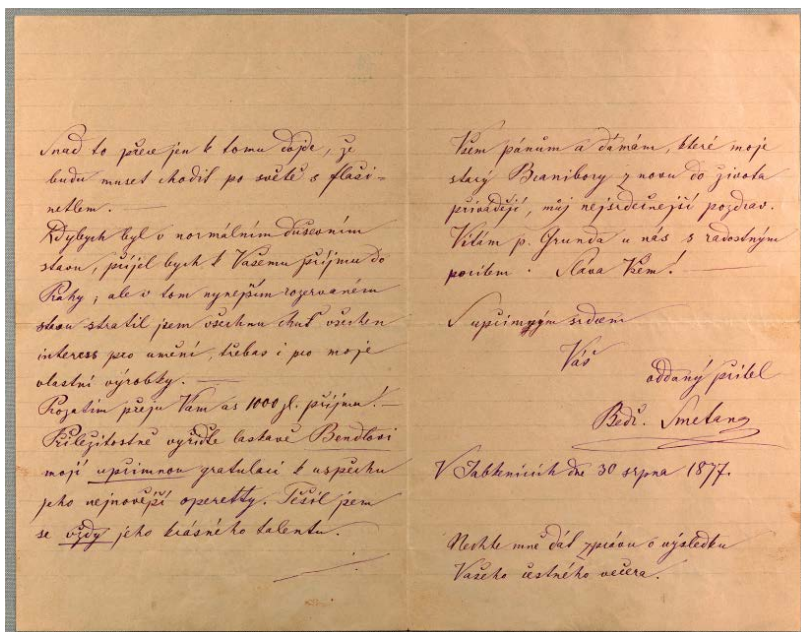 Snad to přece jen k tomu dojde, že
budu muset chodit po světě s flaši-
netlem. —
Kdybych byl v normálním duševním
stavu, přijel bych k Vašemu příjmu do
Prahy, ale v tom nynejším rozervaném
stavu stratil jem všechnu chuť všecken
interess pro umění, třebas i pro moje
vlastní výrobky. —
Prozatím přeju Vám as 1000 zl. příjmu! —
Příležitostně vyřiďte laskavě Bendlovi
mojí upřimnou gratulaci k uspěchu
jeho nejnovější operetty. Těšil jsem
se vždy jeho krásného talentu.
Všem pánům a dámám, které moje
starý Branibory z novu do života
přivádějí, můj nejsrdečnejší pozdrav.
Vítám p. Grunda u nás s radostným
pocitem. Sláva Všem! —
S upřimným srdcem
Váš
oddaný přítel
Bedř. Smetana
V Jabkenicích dne 30 srpna 1877.
Nechte mně dát zprávu o výsledku
Vašeho čestného večera.